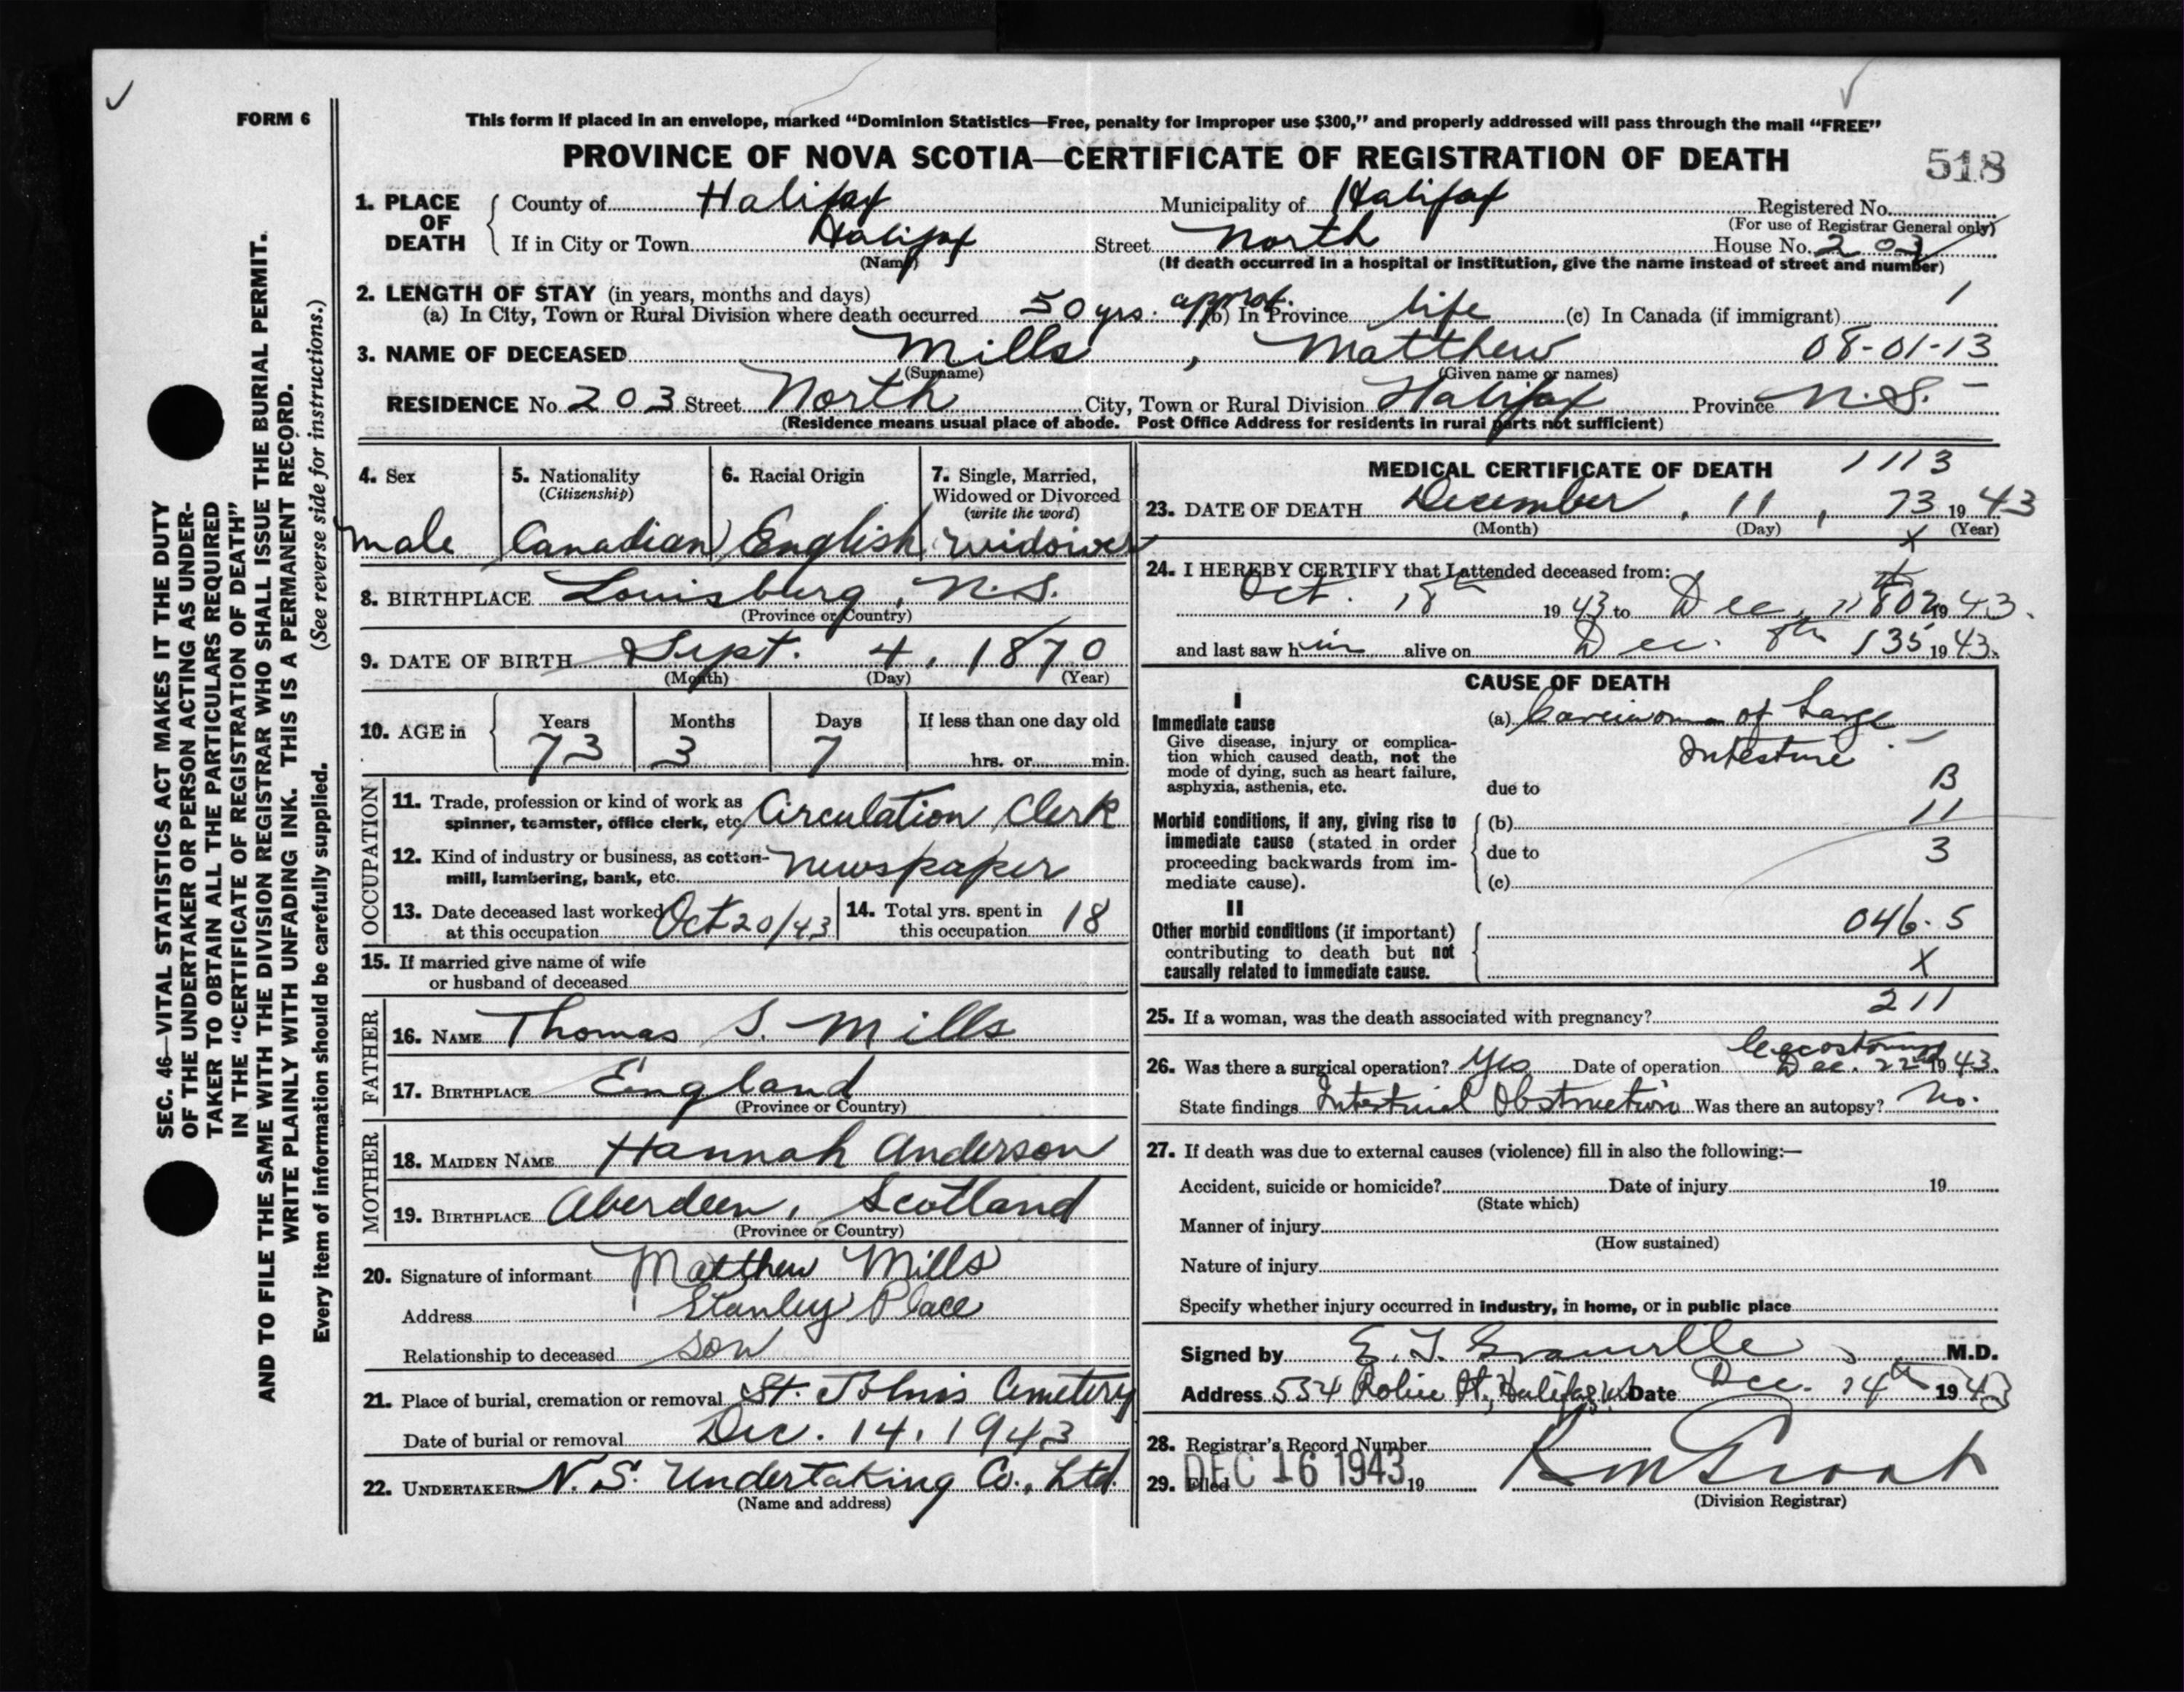 FORM 6
This form if placed in an envelope, marked “Dominion Statistics—Free, penalty for improper use $300,” and properly addressed will pass through the mail “FREE”
PROVINCE OF NOVA SCOTIA—CERTIFICATE OF REGISTRATION OF DEATH
518
1. PLACE OF DEATH
County of Halifax Municipality of Halifax Registered No.
(For use of Registrar General only)
If in City or Town Halifax Street North House No. 203
(Name) (If death occurred in a hospital or institution, give the name instead of street and number)
2. LENGTH OF STAY (in years, months and days) 1
(a) In City, Town or Rural Division where death occurred 50 yrs. approx. (b) In Province life (c) In Canada (if immigrant)
3. NAME OF DECEASED Mills, Matthew 08-01-13
(Surname) (Given name or names)
RESIDENCE No. 203 Street North City, Town or Rural Division Halifax Province N.S.
(Residence means usual place of abode. Post Office Address for residents in rural parts not sufficient)
4. Sex
male
5. Nationality
(Citizenship)
Canadian
6. Racial Origin
English
7. Single, Married,
Widowed or Divorced
(write the word)
widower
8. BIRTHPLACE Louisburg, N.S.
(Province or Country)
9. DATE OF BIRTH Sept. 4, 1870
(Month) (Day) (Year)
10. AGE in
Years Months Days If less than one day old
73 3 7 hrs. or min.
OCCUPATION
11. Trade, profession or kind of work as
spinner, teamster, office clerk, etc. Circulation Clerk
12. Kind of industry or business, as cotton-
mill, lumbering, bank, etc. newspaper
13. Date deceased last worked
at this occupation Oct 20/43
14. Total yrs. spent in
this occupation 18
15. If married give name of wife
or husband of deceased
FATHER
16. NAME Thomas S. Mills
17. BIRTHPLACE England
(Province or Country)
MOTHER
18. MAIDEN NAME Hannah Anderson
19. BIRTHPLACE Aberdeen, Scotland
(Province or Country)
20. Signature of informant Matthew Mills
Address Stanley Place
Relationship to deceased son
21. Place of burial, cremation or removal St. John's Cemetery
Date of burial or removal Dec. 14, 1943
22. UNDERTAKER N.S. Undertaking Co., Ltd.
(Name and address)
MEDICAL CERTIFICATE OF DEATH 1113
23. DATE OF DEATH December, 11, 73 1943
(Month) (Day) (Year)
X
24. I HEREBY CERTIFY that I attended deceased from:
Oct. 18th 1943 to Dec. 11th 802 1943.
and last saw him alive on Dec. 8th 135 1943.
CAUSE OF DEATH
I
Immediate cause
Give disease, injury or complica-
tion which caused death, not the
mode of dying, such as heart failure,
asphyxia, asthenia, etc.
(a) Carcinoma of Large
Intestine
due to
B
11
Morbid conditions, if any, giving rise to
immediate cause (stated in order
proceeding backwards from im-
mediate cause).
(b)
due to 3
(c)
II
Other morbid conditions (if important)
contributing to death but not
causally related to immediate cause.
046.5
X
211
25. If a woman, was the death associated with pregnancy?
26. Was there a surgical operation? Yes Date of operation Cecostomy Dec. 22nd 1943.
State findings Intestinal Obstruction Was there an autopsy? No.
27. If death was due to external causes (violence) fill in also the following:—
Accident, suicide or homicide? Date of injury 19
(State which)
Manner of injury
(How sustained)
Nature of injury
Specify whether injury occurred in industry, in home, or in public place
Signed by E. T. Granville M.D.
Address 554 Robie St., Halifax Date Dec. 14th 1943
28. Registrar's Record Number
29. Filed DEC 16 1943 19
(Division Registrar)
SEC. 46—VITAL STATISTICS ACT MAKES IT THE DUTY
OF THE UNDERTAKER OR PERSON ACTING AS UNDER-
TAKER TO OBTAIN ALL THE PARTICULARS REQUIRED
IN THE “CERTIFICATE OF REGISTRATION OF DEATH”
AND TO FILE THE SAME WITH THE DIVISION REGISTRAR WHO SHALL ISSUE THE BURIAL PERMIT.
WRITE PLAINLY WITH UNFADING INK. THIS IS A PERMANENT RECORD.
Every item of information should be carefully supplied. (See reverse side for instructions.)